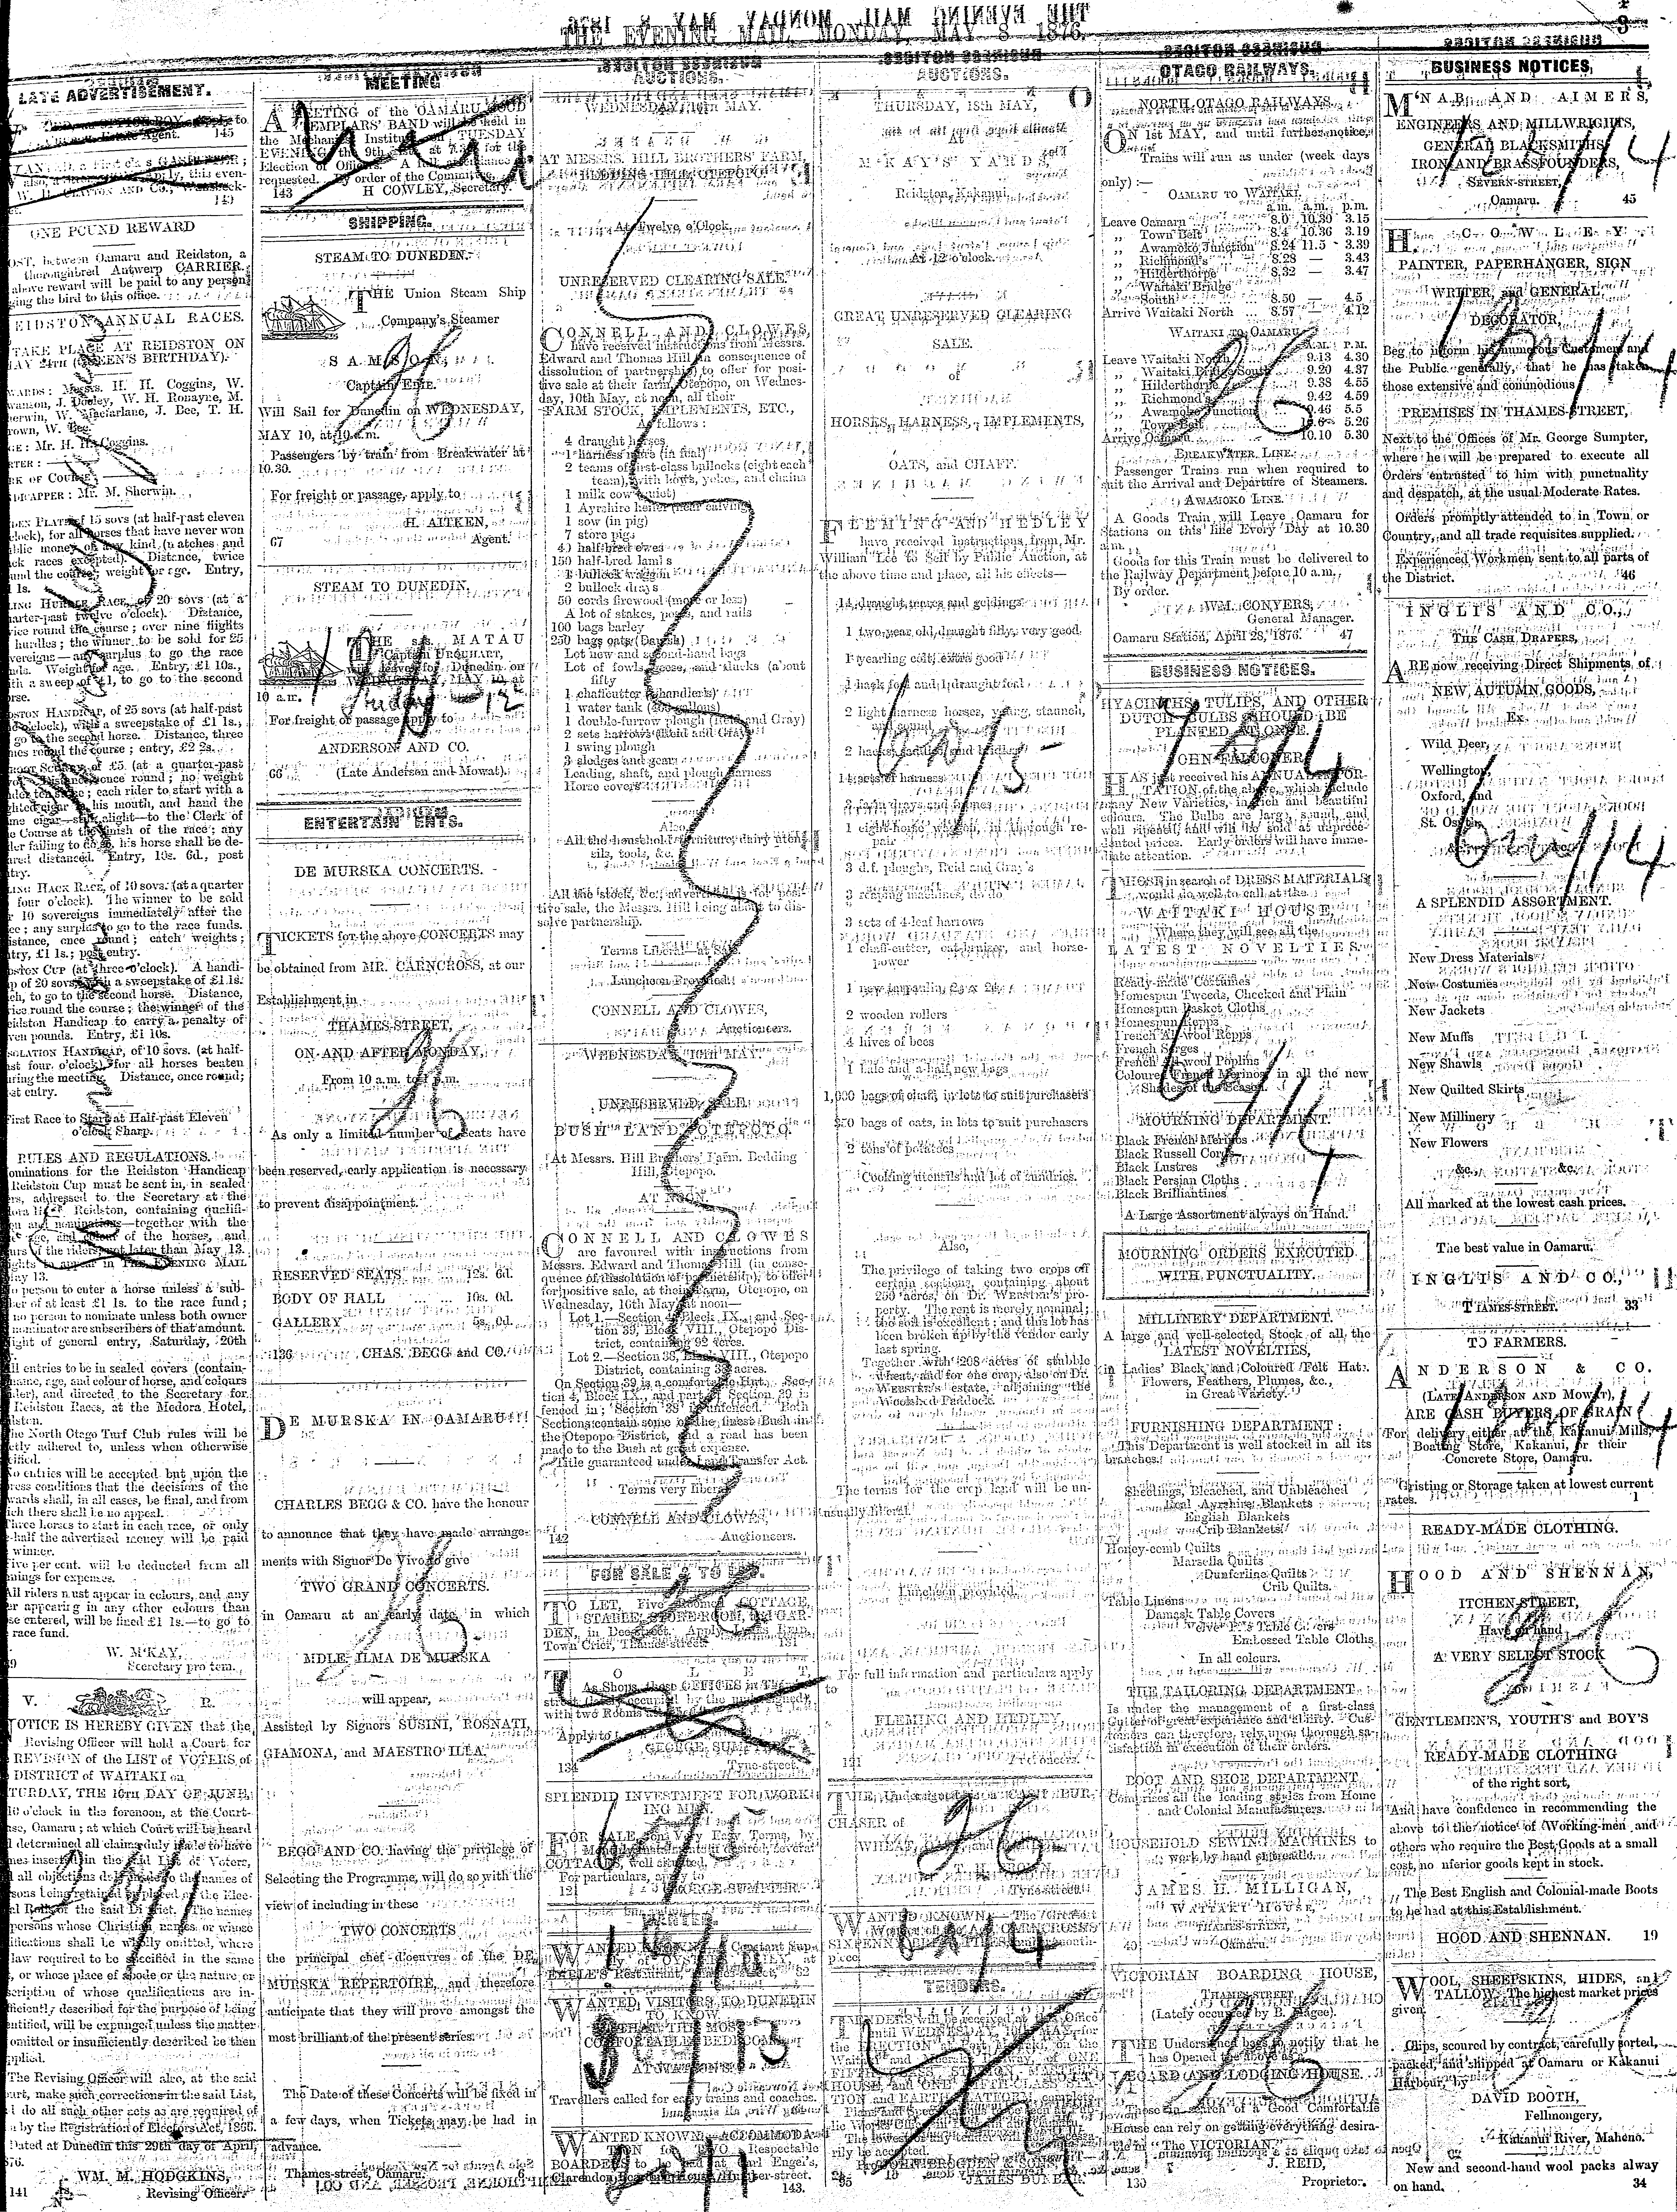 THE EVENING MAIL, MONDAY, MAY 8 1876.
LATE ADVERTISEMENT.
Estate Agent. 145
ONE POUND REWARD
OST, between Oamaru and Reidston, a
thoroughbred Antwerp CARRIER.
above reward will be paid to any person
ging the bird to this office.
EIDSTON ANNUAL RACES.
TAKE PLACE AT REIDSTON ON
AY 24TH (QUEEN'S BIRTHDAY).
WARDS: Messrs. H. H. Coggins, W.
J. Dooley, W. H. Ronayne, M.
herwin, W. Macfarlane, J. Bee, T. H.
rown, W. Bee.
GE: Mr. H. H. Coggins.
RK OF COURSE:
Mr. M. Sherwin.
DEN PLATE of 15 sovs (at half-past eleven
clock), for all horses that have never won
blic money of any kind (matches and
ck races excepted). Distance, twice
und the course; weight for age. Entry,
1s.
LING HURDLE RACE, of 20 sovs (at a
uarter-past twelve o'clock). Distance,
vice round the course; over nine flights
hurdles; the winner to be sold for £5
vereigns—any surplus to go the race
nds. Weight for age. Entry, £1 10s.,
ith a sweep of £1, to go to the second
orse.
DSTON HANDICAP, of 25 sovs (at half-past
o'clock), with a sweepstake of £1 1s.,
go to the second horse. Distance, three
mes round the course; entry, £2 2s.
of £5 (at a quarter-past
Distance, once round; no weight
each rider to start with a
ghted cigar his mouth, and hand the
me cigar—still alight—to the Clerk of
e Course at the finish of the race; any
der failing to do so, his horse shall be de-
ared distanced. Entry, 10s. 6d., post
try.
LING HACK RACE, of 10 sovs. (at a quarter
four o'clock). The winner to be sold
r 10 sovereigns immediately after the
ce; any surplus to go to the race funds.
istance, once round; catch weights;
try, £1 1s.; post entry.
DSTON CUP (at three o'clock). A handi-
p of 20 sovs., with a sweepstake of £1 1s.
ch, to go to the second horse. Distance,
vice round the course; the winner of the
eidston Handicap to carry a penalty of
ven pounds. Entry, £1 10s.
SOLATION HANDICAP, of 10 sovs. (at half-
ast four o'clock), for all horses beaten
uring the meeting. Distance, once round;
ost entry.
First Race to Start at Half-past Eleven
o'clock Sharp.
RULES AND REGULATIONS.
ominations for the Reidston Handicap
Reidston Cup must be sent in, in sealed
rs, addressed to the Secretary at the
Reidston, containing qualifi-
on and nominations—together with the
age, and colour of the horses, and
urs of the riders, not later than May 13.
ghts to appear in THE EVENING MAIL
ay 13.
o person to enter a horse unless a sub-
ber of at least £1 1s. to the race fund;
no person to nominate unless both owner
nominator are subscribers of that amount.
ight of general entry, Saturday, 20th
ll entries to be in sealed covers (contain-
name, age, and colour of horse, and colours
rider), and directed to the Secretary for
Reidston Races, at the Medora Hotel,
dston.
he North Otago Turf Club rules will be
ctly adhered to, unless when otherwise
cified.
No entries will be accepted but upon the
ress conditions that the decisions of the
wards shall, in all cases, be final, and from
ich there shall be no appeal.
Three horses to start in each race, or only
half the advertised money will be paid
winner.
ive per cent. will be deducted from all
nings for expenses.
All riders must appear in colours, and any
er appearing in any other colours than
se entered, will be fined £1 1s.—to go to
race fund.
W. M'KAY,
Secretary pro tem.
V. R.
NOTICE IS HEREBY GIVEN that the
Revising Officer will hold a Court for
REVISION of the LIST of VOTERS of
DISTRICT of WAITAKI on
TURDAY, THE 10TH DAY OF JUNE,
10 o'clock in the forenoon, at the Court-
use, Oamaru; at which Court will be heard
d determined all claims duly made to have
mes inserted in the said List of Voters,
d all objections duly made to the names of
sons being retained or placed on the Elec-
l Roll of the said District. The names
persons whose Christian names, or whose
lifications shall be wholly omitted, where
law required to be specified in the same
, or whose place of abode or the nature or
scription of whose qualifications are in-
fficiently described for the purpose of being
entified, will be expunged unless the matter
omitted or insufficiently described be then
pplied.
The Revising Officer will also, at the said
urt, make such corrections in the said List,
d do all such other acts as are required of
m by the Registration of Electors Act, 1866.
Dated at Dunedin this 29th day of April,
876.
WM. M. HODGKINS,
141 Revising Officer.
MEETING
A MEETING of the OAMARU GOOD
TEMPLARS' BAND will be held in
the Mechanics' Institute on TUESDAY
EVENING, the 9th inst., at 7.30 for the
Election of Officers. A full attendance
requested. By order of the Committee.
143 H COWLEY, Secretary.
SHIPPING.
STEAM TO DUNEDIN.
THE Union Steam Ship
Company's Steamer
SAMSON,
Captain EDIE.
Will Sail for Dunedin on WEDNESDAY,
MAY 10, at 10 a.m.
Passengers by train from Breakwater at
10.30.
For freight or passage, apply to
H. AITKEN,
67 Agent.
STEAM TO DUNEDIN.
THE s.s. MATAU
Captain URQUHART,
will leave for Dunedin on
WEDNESDAY, MAY 10, at
10 a.m.
Friday 12
For freight or passage apply to
ANDERSON AND CO.
66 (Late Anderson and Mowat).
ENTERTAIN ENTS.
DE MURSKA CONCERTS.
TICKETS for the above CONCERTS may
be obtained from MR. CARNCROSS, at our
Establishment in
THAMES-STREET,
ON AND AFTER MONDAY,
From 10 a.m. to 4 p.m.
As only a limited number of seats have
been reserved, early application is necessary
to prevent disappointment.
RESERVED SEATS ... 12s. 6d.
BODY OF HALL ... 10s. 0d.
GALLERY ... 5s. 0d.
136 CHAS. BEGG and CO.
DE MURSKA IN OAMARU!!!
CHARLES BEGG & CO. have the honour
to announce that they have made arrange-
ments with Signor De Vivo to give
TWO GRAND CONCERTS.
in Oamaru at an early date, in which
MDLE. ILMA DE MURSKA
will appear,
Assisted by Signors SUSINI, ROSNATI,
GIAMONA, and MAESTRO ILLA.
BEGG AND CO. having the privilege of
Selecting the Programme, will do so with the
view of including in these
TWO CONCERTS
the principal chef-d'oeuvres of the DE
MURSKA REPERTOIRE, and therefore
anticipate that they will prove amongst the
most brilliant of the present series.
The Date of these Concerts will be fixed in
a few days, when Tickets may be had in
advance.
Thames-street, Oamaru.
AUCTIONS.
WEDNESDAY, 10TH MAY.
AT MESSRS. HILL BROTHERS' FARM,
REDDING HILL, OTEPOPO
At Twelve o'Clock.
UNRESERVED CLEARING SALE.
CONNELL AND CLOWES,
have received instructions from Messrs.
Edward and Thomas Hill (in consequence of
dissolution of partnership) to offer for posi-
tive sale at their farm, Otepopo, on Wednes-
day, 10th May, at noon, all their
FARM STOCK, IMPLEMENTS, ETC.,
As follows:
4 draught horses
1 harness mare (in foal)
2 teams of first-class bullocks (eight each
team), with bows, yokes, and chains
1 milk cow (quiet)
1 Ayrshire heifer (near calving)
1 sow (in pig)
7 store pigs
40 half-bred ewes
150 half-bred lambs
1 bullock waggon
2 bullock drays
50 cords firewood (more or less)
A lot of stakes, posts, and rails
100 bags barley
250 bags oats (Danish)
Lot new and second-hand bags
Lot of fowls, geese, and ducks (about
fifty
1 chaffcutter (Chandler's)
1 water tank (400 gallons)
1 double-furrow plough (Reid and Gray)
2 sets harrows (Reid and Gray)
1 swing plough
3 sledges and gear
Leading, shaft, and plough harness
Horse covers
Also,
All the household furniture, dairy uten-
sils, tools, &c.
All the stock, &c., advertised is for posi-
tive sale, the Messrs. Hill being about to dis-
solve partnership.
Terms Liberal—at Sale.
Luncheon Provided.
CONNELL AND CLOWES,
Auctioneers.
WEDNESDAY, 10TH MAY.
UNRESERVED SALE.
BUSH LAND, OTEPOPO.
At Messrs. Hill Brothers' Farm, Redding
Hill, Otepopo.
AT NOON.
CONNELL AND CLOWES
are favoured with instructions from
Messrs. Edward and Thomas Hill (in conse-
quence of dissolution of partnership), to offer
for positive sale, at their Farm, Otepopo, on
Wednesday, 10th May, at noon—
Lot 1.—Section 4, Block IX., and Sec-
tion 39, Block VIII., Otepopo Dis-
trict, containing 92 acres.
Lot 2.—Section 38, Block VIII., Otepopo
District, containing 38 acres.
On Section 39 is a comfortable Hut. Sec-
tion 4, Block IX., and part of Section 39 is
fenced in; Section 38 is unfenced. Both
Sections contain some of the finest Bush in
the Otepopo District, and a road has been
made to the Bush at great expense.
Title guaranteed under Land Transfer Act.
Terms very liberal.
CONNELL AND CLOWES,
142 Auctioneers.
FOR SALE & TO LET.
TO LET, Five Roomed COTTAGE,
STABLE, STORE-ROOM, and GAR-
DEN, in
Town Crier, Thames-street. 131
TO LET,
As Shops, those OFFICES in Thames-
street (lately occupied by the undersigned),
with two Rooms
Apply to
GEORGE SUMPTER,
134 Tyne-street.
SPLENDID INVESTMENT FOR WORK-
ING MEN.
FOR SALE, on Very Easy Terms, by
Monthly Instalments if desired, several
COTTAGES, well situated.
For particulars, apply to
121 GEORGE SUMPTER.
WANTED KNOWN.—A Constant Sup-
ply of OYSTERS
Restaurant, 82
WANTED, VISITORS TO DUNEDIN
TO KNOW
THAT THE MOST
COMFORTABLE BEDS
AT WATSON'S
Travellers called for early trains and coaches.
WANTED KNOWN.—ACCOMMODA-
TION for TWO Respectable
BOARDERS to be had at Carl Engel's,
Clarendon Boarding House, Humber-street.
143.
AUCTIONS.
THURSDAY, 18TH MAY,
At
M'KAY'S YARDS,
Reidston, Kakanui,
At 12 o'clock.
GREAT UNRESERVED CLEARING
SALE.
of
HORSES, HARNESS, IMPLEMENTS,
OATS, and CHAFF.
FLEMING AND HEDLEY
have received instructions from Mr.
William Lee to Sell by Public Auction, at
the above time and place, all his effects—
14 draught mares and geldings
1 two-year old draught filly, very good
1 yearling colt, extra good
1 hack foal and 1 draught foal
2 light harness horses, young, staunch,
2 hacks, saddles, and bridles
11 sets of harness
3 farm drays and frames
1 eight-horse waggon, in thorough re-
pair
3 d.f. ploughs, Reid and Gray's
3 reaping machines, do do
3 sets of 4-leaf harrows
1 chaff-cutter, and horse-
power
1 new tarpaulin, 24 x 24
2 wooden rollers
4 hives of bees
1 bale and a-half new bags
1,000 bags of chaff, in lots to suit purchasers
350 bags of oats, in lots to suit purchasers
2 tons of potatoes
Cooking utensils and lot of sundries.
Also,
The privilege of taking two crops off
certain sections, containing about
250 acres, on Dr. WEBSTER'S pro-
perty. The rent is merely nominal;
the soil is excellent; and this lot has
been broken up by the vendor early
last spring.
Together with 208 acres of stubble
wheat, and for one crop, also on Dr.
WEBSTER'S estate, adjoining the
Woolshed Paddock.
The terms for the crop land will be un-
usually liberal.
Luncheon provided.
For full information and particulars apply
to
FLEMING AND HEDLEY,
121 Auctioneers.
THE Undersigned is a CASH PUR-
CHASER of
WHEAT,
Tyne-street.
WANTED KNOWN.—The Greatest
Wonder of the Age. CARNCROSS'S
SIXPENNY
TENDERS.
TENDERS will be received at this Office
until WEDNESDAY, 10th MAY, for
the ERECTION
JOHN BROGDEN & SONS,
95 JAMES DU
OTAGO RAILWAYS.
NORTH OTAGO RAILWAYS.
ON 1ST MAY, and until further notice,
Trains will run as under (week days
only):—
OAMARU TO WAITAKI.
a.m. a.m. p.m.
Leave Oamaru 8.0 10.30 3.15
„ Town Belt 8.4 10.36 3.19
„ Awamoko Junction 8.24 11.5 3.39
„ Richmond's 8.28 — 3.43
„ Hilderthorpe 8.32 — 3.47
„ Waitaki Bridge
South 8.50 — 4.5
Arrive Waitaki North 8.57 — 4.12
WAITAKI TO OAMARU.
A.M. P.M.
Leave Waitaki North 9.13 4.30
„ Waitaki Bridge South 9.20 4.37
„ Hilderthorpe 9.38 4.55
„ Richmond's 9.42 4.59
„ Awamoko Junction 9.46 5.5
„ Town Belt 10.6 5.26
Arrive Oamaru 10.10 5.30
BREAKWATER LINE.
Passenger Trains run when required to
suit the Arrival and Departure of Steamers.
AWAMOKO LINE.
A Goods Train will Leave Oamaru for
Stations on this line Every Day at 10.30
a.m.
Goods for this Train must be delivered to
the Railway Department before 10 a.m.
By order.
WM. CONYERS,
General Manager.
Oamaru Station, April 28, 1876. 47
BUSINESS NOTICES.
HYACINTHS, TULIPS, AND OTHER
DUTCH BULBS SHOULD BE
PLANTED AT ONCE.
JOHN FALCONER
HAS just received his ANNUAL IMPOR-
TATION of the above, which include
many New Varieties, in rich and beautiful
colours. The Bulbs are large, sound, and
well ripened, and will be sold at unprece-
dented prices. Early orders will have imme-
diate attention.
THOSE in search of DRESS MATERIALS
would do well to call at the
WAITAKI HOUSE,
Where they will see all the
LATEST NOVELTIES.
Ready-made Costumes
Homespun Tweeds, Checked and Plain
Homespun Basket Cloths
Homespun Repps
French All-wool Repps
French Serges
French All-wool Poplins
Coloured French Merinos, in all the new
Shades of the Season.
MOURNING DEPARTMENT.
Black French Merinos
Black Russell Cord
Black Lustres
Black Persian Cloths
Black Brilliantines
A Large Assortment always on Hand.
MOURNING ORDERS EXECUTED
WITH PUNCTUALITY.
MILLINERY DEPARTMENT.
A large and well-selected Stock of all the
LATEST NOVELTIES,
in Ladies' Black and Coloured Felt Hats,
Flowers, Feathers, Plumes, &c.,
in Great Variety.
FURNISHING DEPARTMENT:
This Department is well stocked in all its
branches.
Sheetings, Bleached, and Unbleached
Real Ayrshire Blankets
English Blankets
Crib Blankets
Honey-comb Quilts
Marsella Quilts
Dunferline Quilts
Crib Quilts.
Table Linens
Damask Table Covers
Embossed Table Cloths
In all colours.
THE TAILORING DEPARTMENT
Is under the management of a first-class
Cutter of great experience and ability. Cus-
tomers can therefore rely upon thorough sa-
tisfaction in execution of their orders.
BOOT AND SHOE DEPARTMENT
Comprises all the leading styles from Home
and Colonial Manufacturers.
HOUSEHOLD SEWING MACHINES to
work by hand or treadle.
JAMES H. MILLIGAN,
WAITAKI HOUSE,
THAMES-STREET,
40 Oamaru.
VICTORIAN BOARDING HOUSE,
THAMES-STREET
(Lately occupied by B. Magee).
THE Undersigned begs to notify that he
has Opened the above as a
BOARD AND LODGING HOUSE.
Those in search of a Good Comfortable
House can rely on getting everything desira-
ble in "The VICTORIAN."
J. REID,
130 Proprietor.
BUSINESS NOTICES,
M'NAB AND AIMERS,
ENGINEERS AND MILLWRIGHTS,
GENERAL BLACKSMITHS
IRON AND BRASSFOUNDERS,
SEVERN-STREET,
Oamaru. 45
H. COWLEY
PAINTER, PAPERHANGER, SIGN
WRITER, and GENERAL
DECORATOR,
Beg to inform his numerous Customers and
the Public generally, that he has taken
those extensive and commodious
PREMISES IN THAMES-STREET,
Next to the Offices of Mr. George Sumpter,
where he will be prepared to execute all
Orders entrusted to him with punctuality
and despatch, at the usual Moderate Rates.
Orders promptly attended to in Town or
Country, and all trade requisites supplied.
Experienced Workmen sent to all parts of
the District. 46
INGLIS AND CO.,
THE CASH DRAPERS,
ARE now receiving Direct Shipments of
NEW AUTUMN GOODS,
Ex
Wild Deer,
Wellington,
Oxford, and
St. Osyth,
A SPLENDID ASSORTMENT.
New Dress Materials
New Costumes
New Jackets
New Muffs
New Shawls
New Quilted Skirts
New Millinery
New Flowers
&c., &c.
All marked at the lowest cash prices.
The best value in Oamaru.
INGLIS AND CO.,
THAMES-STREET. 33
TO FARMERS.
ANDERSON & CO.
(LATE ANDERSON AND MOWAT),
ARE CASH BUYERS OF GRAIN
For delivery either at the Kakanui Mills,
Boating Store, Kakanui, or their
Concrete Store, Oamaru.
Gristing or Storage taken at lowest current
rates. 1
READY-MADE CLOTHING.
HOOD AND SHENNAN,
ITCHEN-STREET,
Have on hand
A VERY SELECT STOCK
OF
GENTLEMEN'S, YOUTH'S and BOY'S
READY-MADE CLOTHING
of the right sort,
And have confidence in recommending the
above to the notice of Working-men and
others who require the Best Goods at a small
cost, no nferior goods kept in stock.
The Best English and Colonial-made Boots
to be had at this Establishment.
HOOD AND SHENNAN. 19
WOOL, SHEEPSKINS, HIDES, and
TALLOW. The highest market prices
given.
Clips, scoured by contract, carefully sorted,
packed, and shipped at Oamaru or Kakanui
Harbour, by
DAVID BOOTH,
Fellmongery,
Kakanui River, Maheno.
New and second-hand wool packs alway
on hand. 34